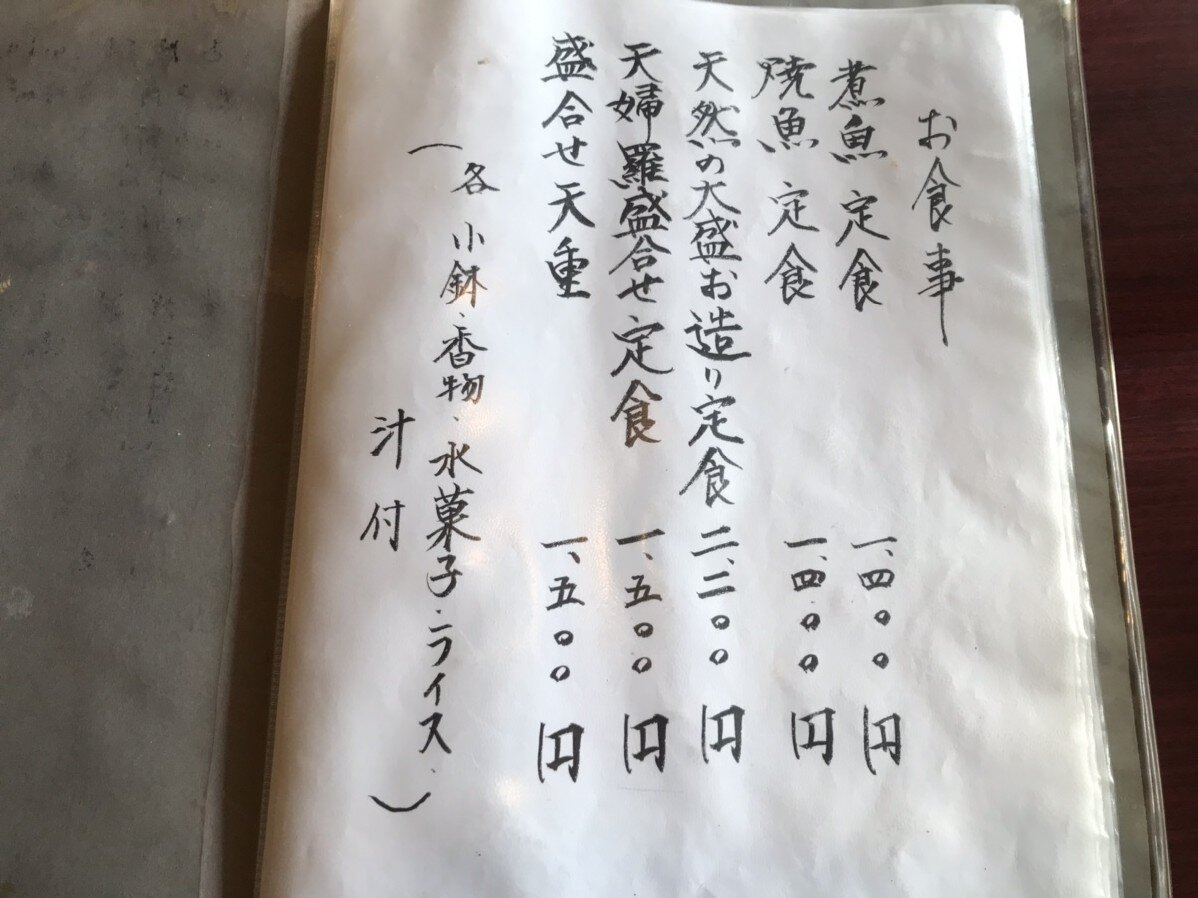 お食事
煮魚定食 一、四〇〇円
焼魚定食 一、四〇〇円
天然の大盛お造り定食 二、二〇〇円
天婦羅盛合せ定食 一、五〇〇円
盛合せ天重 一、五〇〇円
(各小鉢、香物、水菓子、ライス、
汁付)